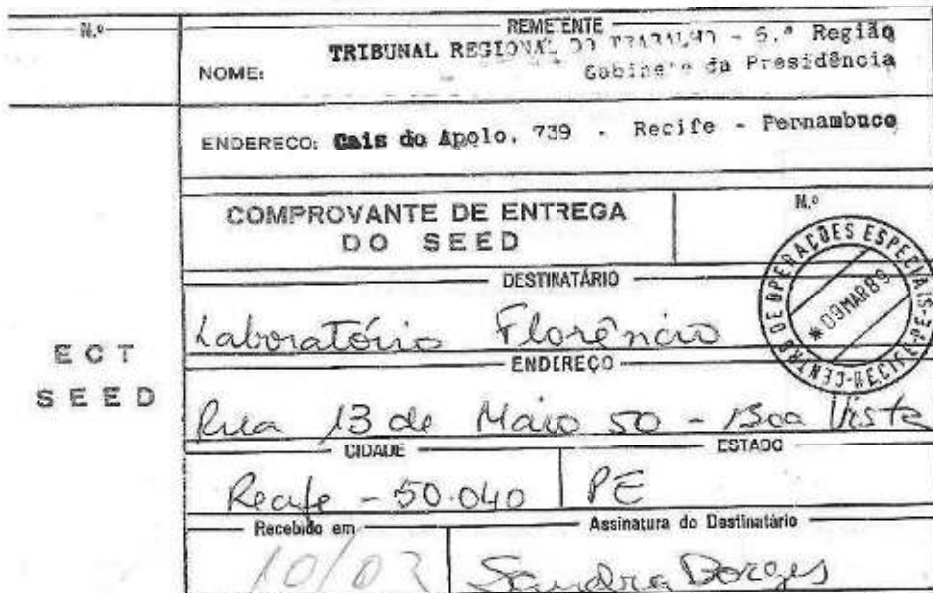 N.º
REMETENTE
NOME: TRIBUNAL REGIONAL DO TRABALHO - 6.ª Região
Gabinete da Presidência
ENDERECO: Cais do Apolo, 739 - Recife - Pernambuco
COMPROVANTE DE ENTREGA
DO SEED
N.º
CENTRO DE OPERAÇÕES ESPECIAIS
* 09 MAR 89
DESTINATÁRIO
Laboratório Florêncio
ENDEREÇO
Rua 13 de Maio 50 - Boa Vista
ECT
SEED
CIDADE
ESTADO
Recife - 50.040
PE
Recebido em
Assinatura do Destinatário
10/03
Sandra Borges